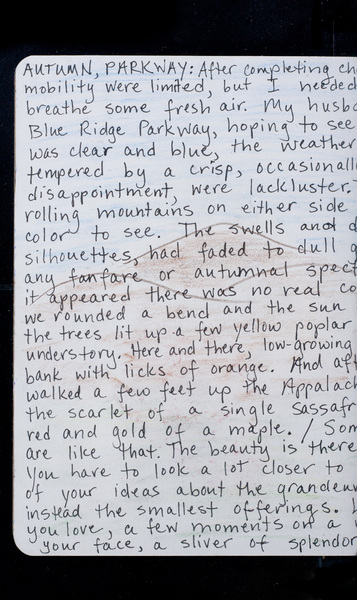 AUTUMN, PARKWAY: After completing ch
mobility were limited, but I needed
breathe some fresh air. My husba
Blue Ridge Parkway, hoping to see
was clear and blue, the weather
tempered by a crisp, occasionall
disappointment, were lackluster.
rolling mountains on either side
color to see. The swells and d
silhouettes, had faded to dull g
any fanfare or autumnal spect
it appeared there was no real co
we rounded a bend and the sun
the trees lit up a few yellow poplar
understory. Here and there, low-growing
bank with licks of orange. And aft
walked a few feet up the Appalach
the scarlet of a single sassafr
red and gold of a maple. / Som
are like that. The beauty is there
You have to look a lot closer to
of your ideas about the grandeur
instead the smallest offerings.
you love, a few moments on a
your face, a sliver of splendor